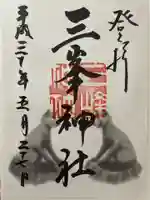 登拝
三峯神社
平成三十年五月二十一日